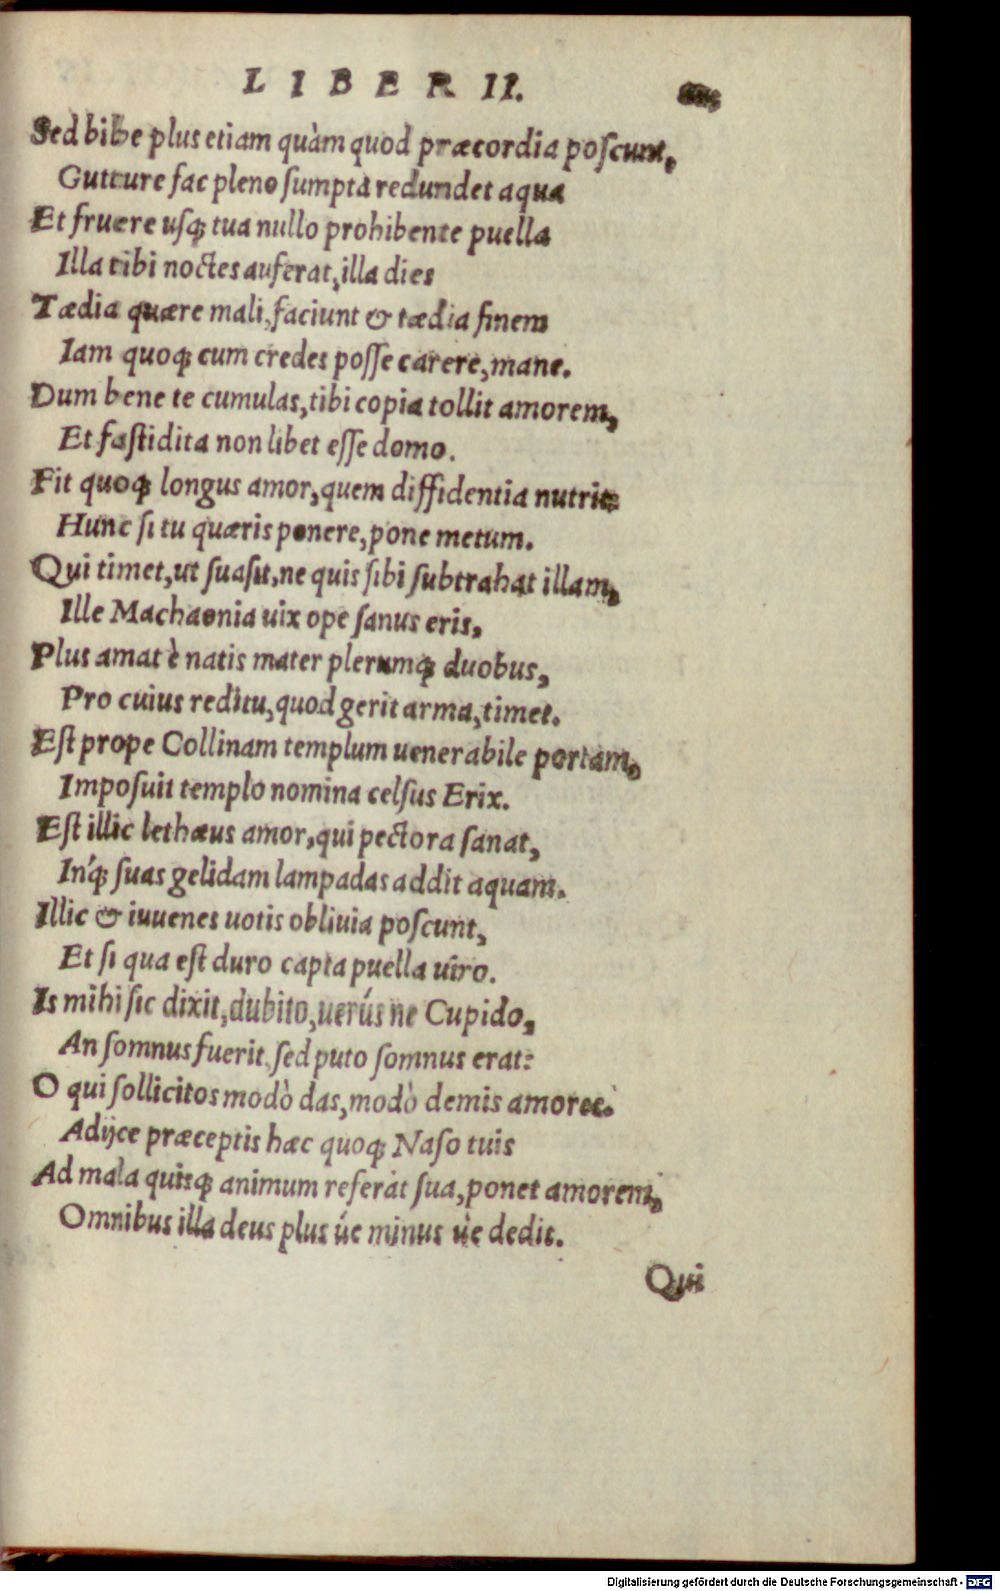 LIBER II.
Sed bibe plus etiam quàm quod præcordia poſcunt,
Gutture fac pleno ſumpta redundet aqua
Et fruere uſq; tua nullo prohibente puella
Illa tibi noctes auferat, illa dies
Tædia quære mali, faciunt & tædia finem
Iam quoq; cum credes poſſe carere, mane.
Dum bene te cumulas, tibi copia tollit amorem,
Et faſtidita non libet eſſe domo.
Fit quoq; longus amor, quem diffidentia nutrit:
Hunc ſi tu quæris ponere, pone metum.
Qui timet, ut ſua ſit, ne quis ſibi ſubtrahat illam,
Ille Machaonia uix ope ſanus eris,
Plus amat è natis mater plerumq; duobus,
Pro cuius reditu, quod gerit arma, timet.
Eſt prope Collinam templum uenerabile portam,
Impoſuit templo nomina celſus Erix.
Eſt illic lethæus amor, qui pectora ſanat,
Inq́; ſuas gelidam lampadas addit aquam.
Illic & iuuenes uotis obliuia poſcunt,
Et ſi qua eſt duro capta puella uiro.
Is mihi ſic dixit, dubito, uerús ne Cupido,
An ſomnus fuerit, ſed puto ſomnus erat:
O qui ſollicitos modò das, modò demis amores.
Adijce præceptis hæc quoq; Naſo tuis
Ad mala quisq; animum referat ſua, ponet amorem,
Omnibus illa deus plus úe minus úe dedit.
Qui
Digitalisierung gefördert durch die Deutsche Forschungsgemeinschaft - DFG